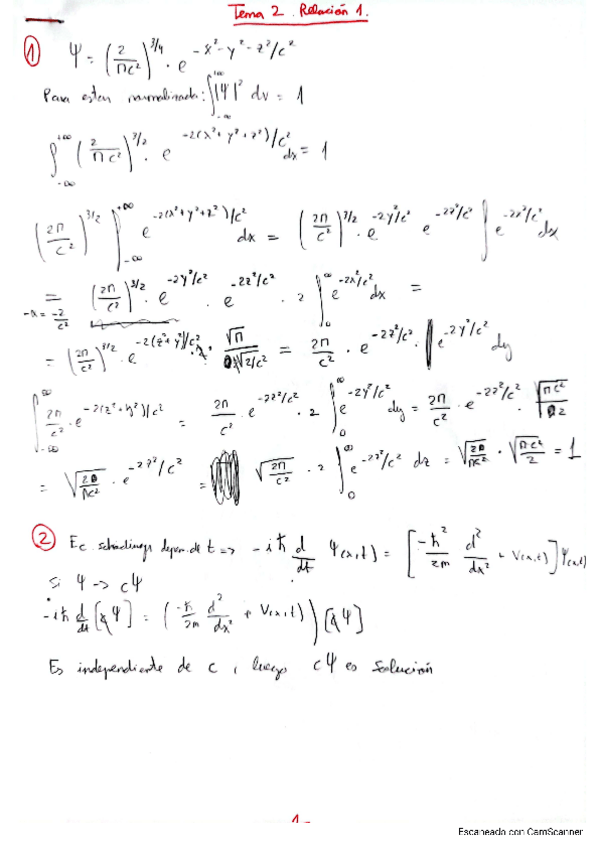 Tema 2. Relación 1.
① Ψ = (2/πc²)^3/4 · e^-x²-y²-z²/c²
Para estar normalizada: ∫_-∞^+∞ |Ψ|² dv = 1
∫_-∞^+∞ (2/πc²)^3/2 · e^-2(x²+y²+z²)/c² dx = 1
(2π/c²)^3/2 ∫_-∞^+∞ e^-2(x²+y²+z²)/c² dx = (2π/c²)^3/2 · e^-2y²/c² e^-2z²/c² ∫ e^-2x²/c² dx
= (2π/c²)^3/2 · e^-2y²/c² · e^-2z²/c² · 2 ∫_0^∞ e^-2x²/c² dx =
-α = -2/c²
= (2π/c²)^3/2 · e^-2(z²+y²)/c² · 2 · √π / 2√2/c² = 2π/c² · e^-2z²/c² · ∫ e^-2y²/c² dy
∫_-∞^∞ 2π/c² · e^-2(z²+y²)/c² = 2π/c² · e^-2z²/c² · 2 ∫_0^∞ e^-2y²/c² dy = 2π/c² · e^-2z²/c² · √πc²/2
= √2/πc² · e^-2z²/c² = √2π/c² · 2 ∫_0^∞ e^-2z²/c² dz = √2/πc² · √πc²/2 = 1
② Ec. schrödinger depen. de t => -iℏ d/dt Ψ(x,t) = [-ℏ²/2m d²/dx² + V(x,t)] Ψ(x,t)
Si Ψ -> cΨ
-iℏ d/dt [cΨ] = (-ℏ/2m d²/dx² + V(x,t)) [cΨ]
Es independiente de c, luego cΨ es solución
1-
Escaneado con CamScanner